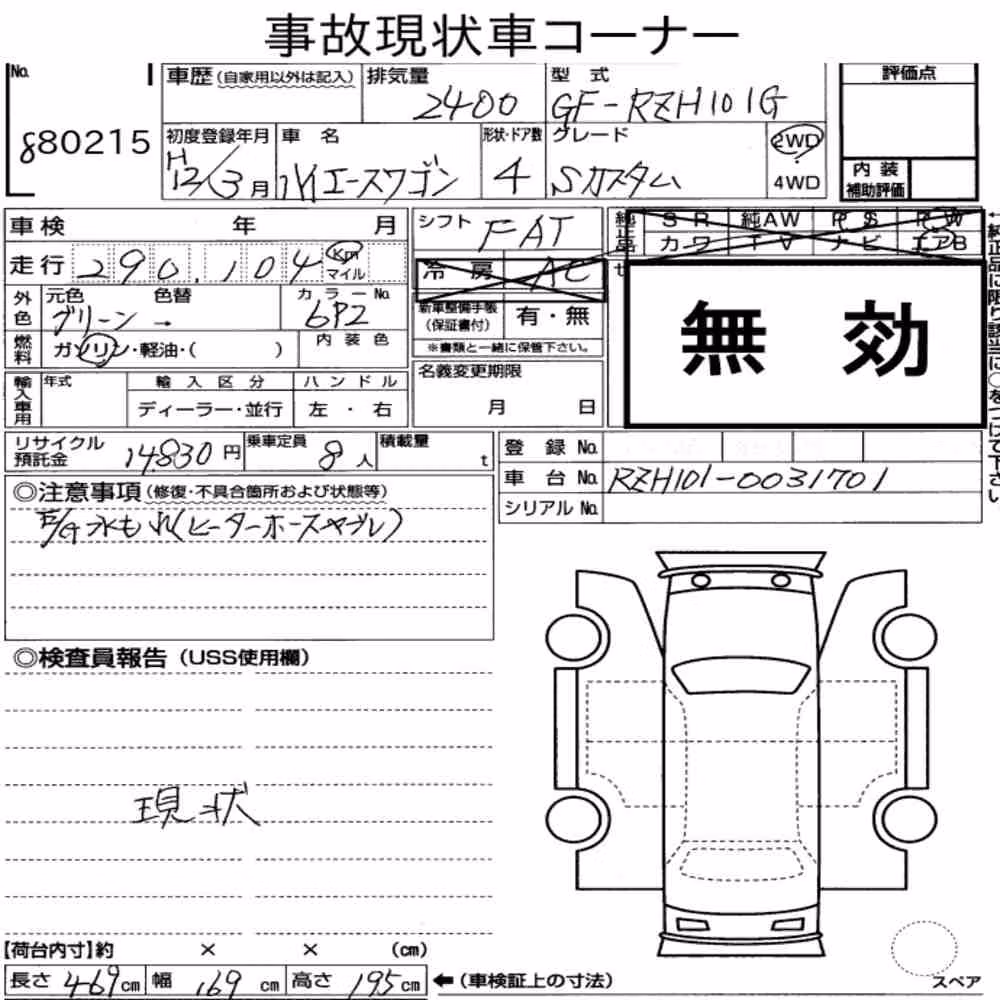 事故現状車コーナー
No.
880215
車歴(自家用以外は記入)
排気量
2400
型式
GF-RZH101G
評価点
初度登録年月
H12/3月
車名
ハイエースワゴン
形状・ドア数
4
グレード
Sカスタム
2WD
4WD
内装
補助評価
車検 年 月
シフト
FAT
純正品 SR 純AW PS PW
カーワ TV ナビ エアB
走行 290,104 Km マイル
冷房 AC
外色 元色 色替
グリーン →
カラーNo.
6P2
新車整備手帳
(保証書付)
有・無
※書類と一緒に保管下さい。
無効
燃料 ガソリン・軽油・( )
内装色
輸入車用 年式
輸入区分
ディーラー・並行
ハンドル
左・右
名義変更期限
月 日
←純正品に限り該当に○をつけて下さい。
リサイクル
預託金
14,830円
乗車定員
8人
積載量
t
登録No.
車台No. RZH101-0031701
シリアルNo.
◎注意事項(修復・不具合箇所および状態等)
水もれ(ヒーターホースヤブレ)
◎検査員報告(USS使用欄)
現状
【荷台内寸】約 × × (cm)
長さ 469cm 幅 169cm 高さ 195cm ←(車検証上の寸法)
スペア